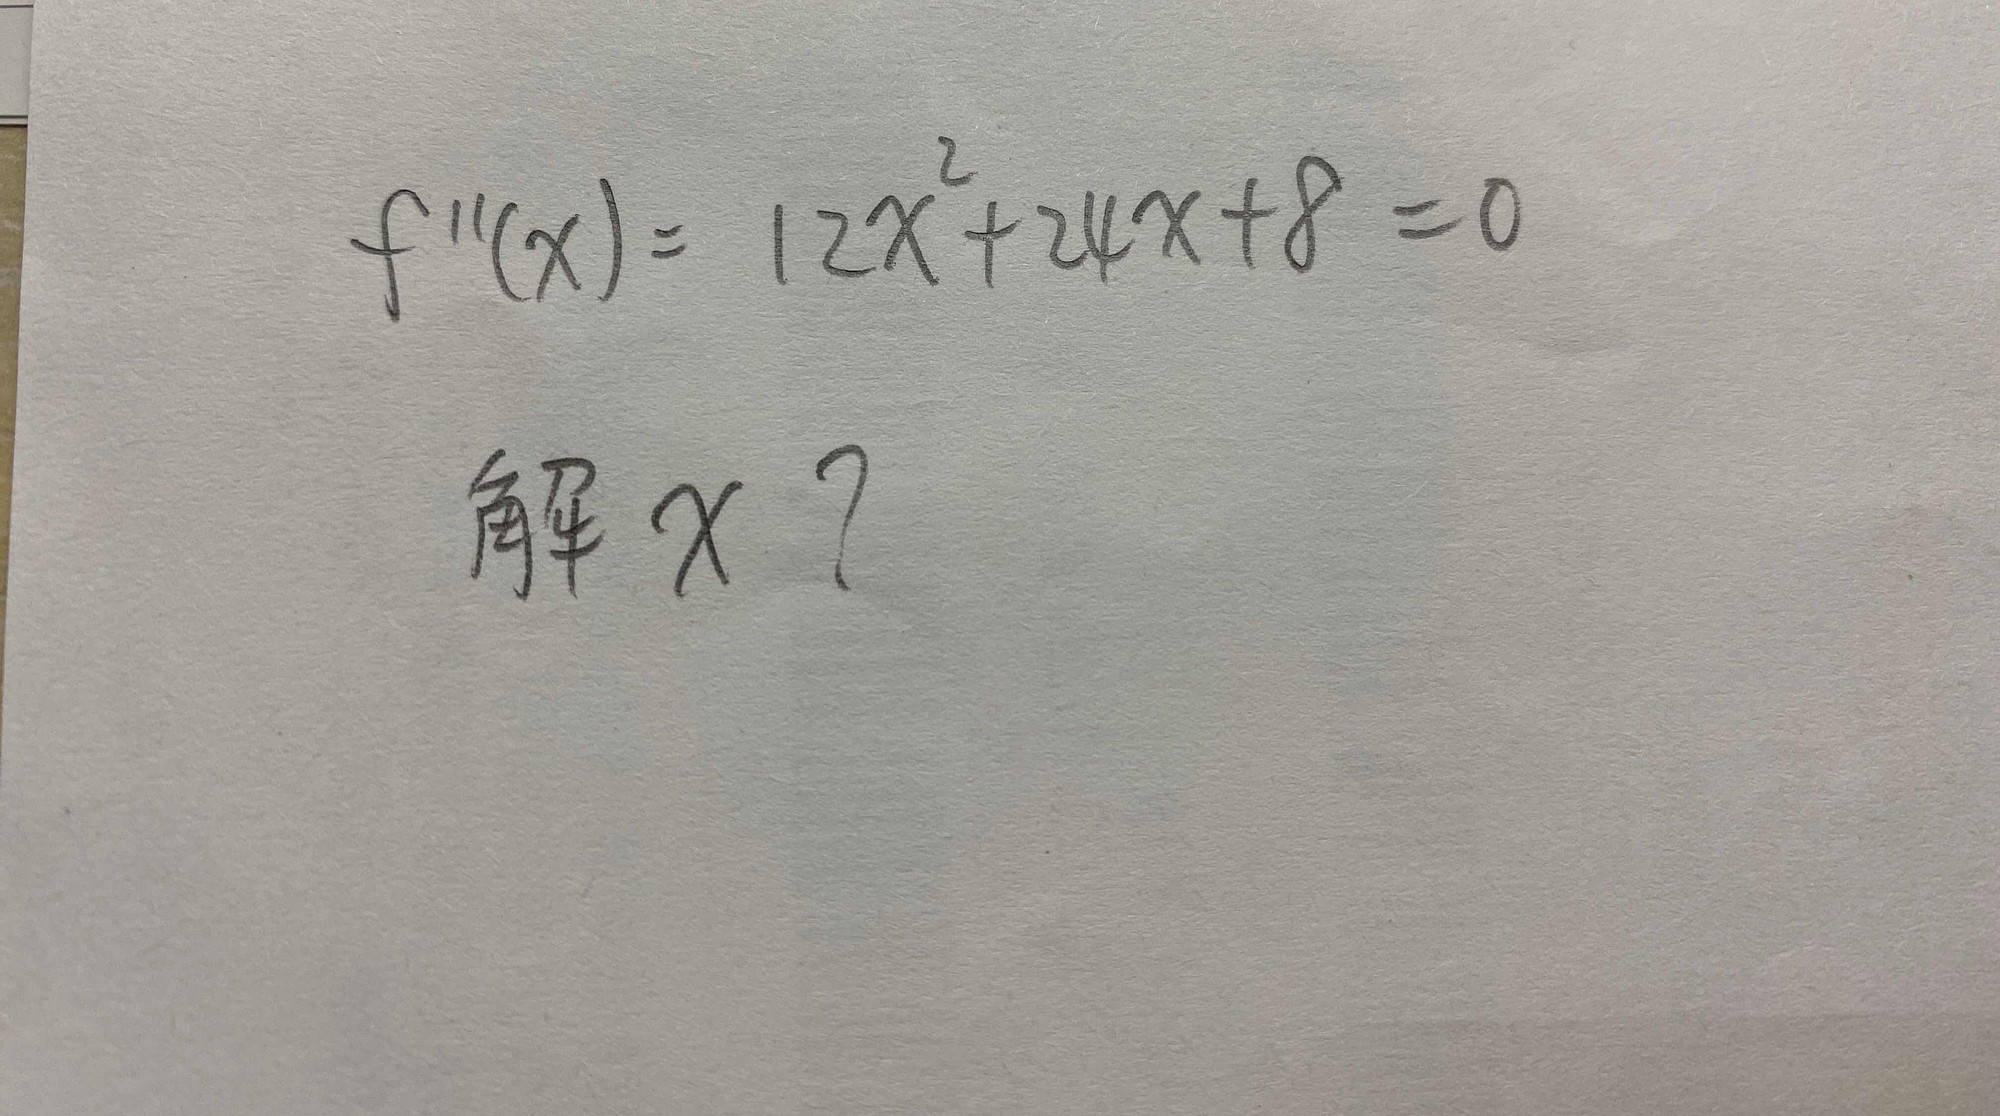 f''(x) = 12x²+24x+8 = 0
解 x ?